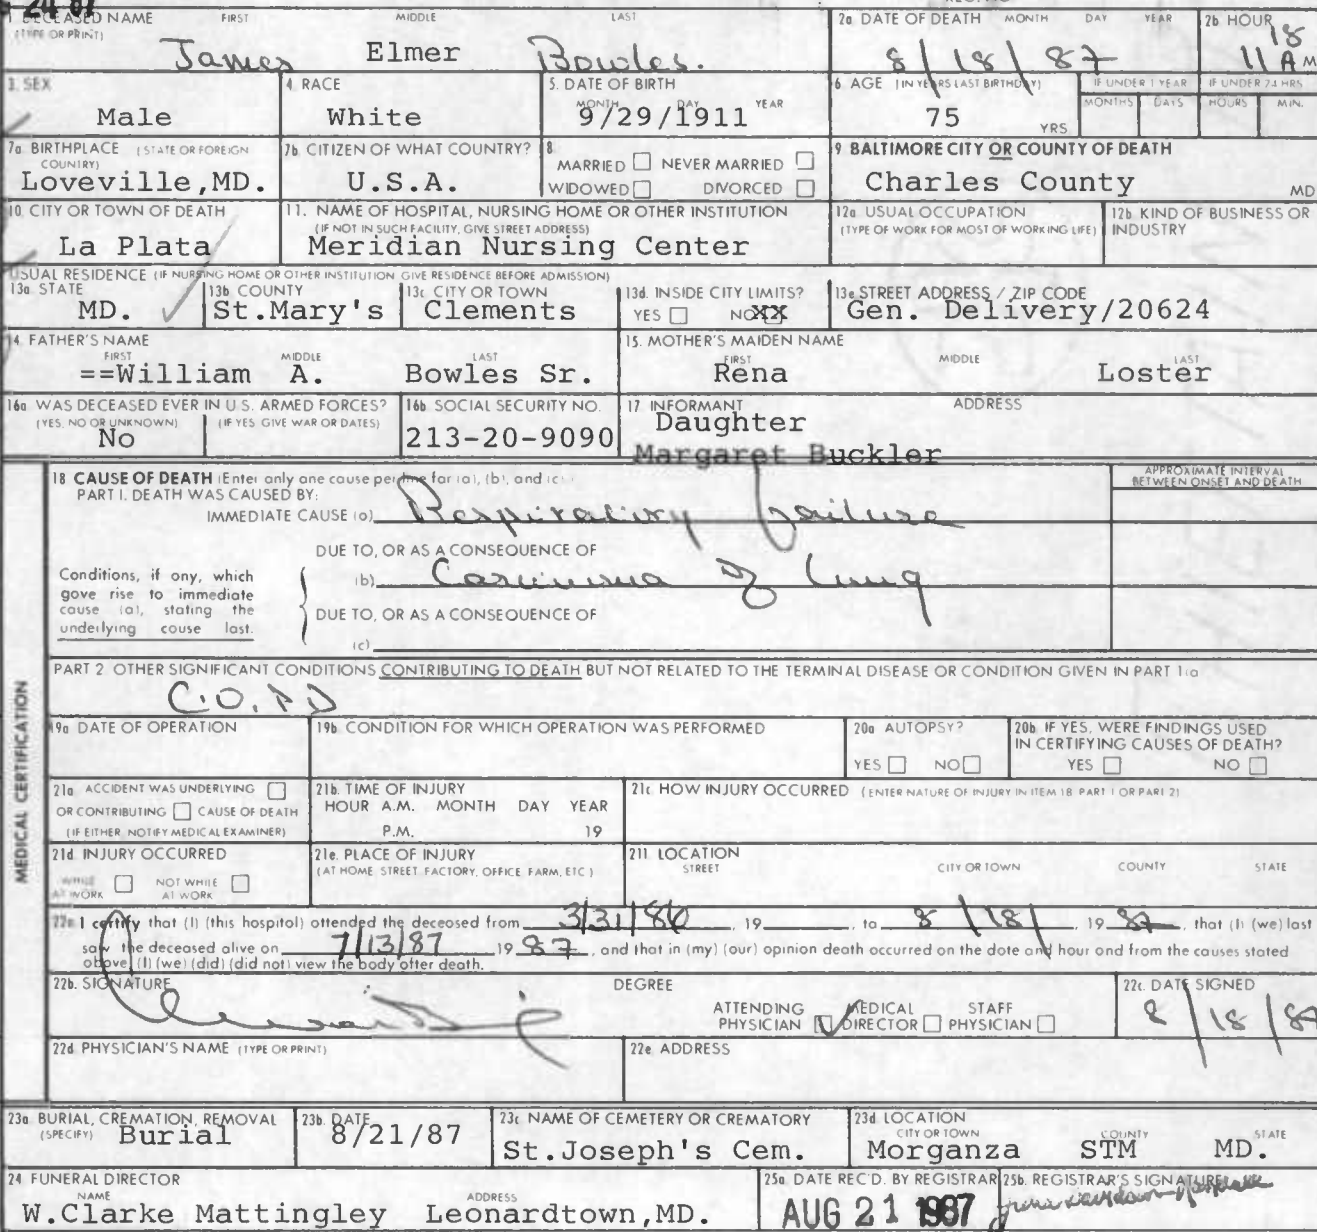 24 87
1 DECEASED NAME FIRST MIDDLE LAST
(TYPE OR PRINT)
James Elmer Bowles.
2a DATE OF DEATH MONTH DAY YEAR
8/18/87
2b HOUR
11 18 A M
3. SEX
Male
4. RACE
White
5. DATE OF BIRTH
MONTH DAY YEAR
9/29/1911
6. AGE (IN YEARS LAST BIRTHDAY)
75 YRS
IF UNDER 1 YEAR IF UNDER 24 HRS
MONTHS DAYS HOURS MIN.
7a BIRTHPLACE (STATE OR FOREIGN
COUNTRY)
Loveville,MD.
7b CITIZEN OF WHAT COUNTRY?
U.S.A.
8
MARRIED NEVER MARRIED
WIDOWED DIVORCED
9 BALTIMORE CITY OR COUNTY OF DEATH
Charles County MD
10. CITY OR TOWN OF DEATH
La Plata
11. NAME OF HOSPITAL, NURSING HOME OR OTHER INSTITUTION
(IF NOT IN SUCH FACILITY, GIVE STREET ADDRESS)
Meridian Nursing Center
12a USUAL OCCUPATION
(TYPE OF WORK FOR MOST OF WORKING LIFE)
12b KIND OF BUSINESS OR
INDUSTRY
USUAL RESIDENCE (IF NURSING HOME OR OTHER INSTITUTION GIVE RESIDENCE BEFORE ADMISSION)
13a STATE
MD.
13b COUNTY
St.Mary's
13c CITY OR TOWN
Clements
13d. INSIDE CITY LIMITS?
YES NO XX
13e STREET ADDRESS / ZIP CODE
Gen. Delivery/20624
14. FATHER'S NAME
FIRST MIDDLE LAST
==William A. Bowles Sr.
15. MOTHER'S MAIDEN NAME
FIRST MIDDLE LAST
Rena Loster
16a WAS DECEASED EVER IN U.S. ARMED FORCES?
(YES, NO OR UNKNOWN) (IF YES GIVE WAR OR DATES)
No
16b SOCIAL SECURITY NO.
213-20-9090
17 INFORMANT ADDRESS
Daughter
Margaret Buckler
MEDICAL CERTIFICATION
18 CAUSE OF DEATH (Enter only one cause per line for (a), (b), and (c)
PART I. DEATH WAS CAUSED BY:
APPROXIMATE INTERVAL
BETWEEN ONSET AND DEATH
IMMEDIATE CAUSE (a) Respiratory failure
DUE TO, OR AS A CONSEQUENCE OF
Conditions, if any, which
gave rise to immediate
cause (a), stating the
underlying cause last.
(b) Carcinoma of lung
DUE TO, OR AS A CONSEQUENCE OF
(c)
PART 2 OTHER SIGNIFICANT CONDITIONS CONTRIBUTING TO DEATH BUT NOT RELATED TO THE TERMINAL DISEASE OR CONDITION GIVEN IN PART 1(a
C.O.P.D
19a DATE OF OPERATION
19b CONDITION FOR WHICH OPERATION WAS PERFORMED
20a AUTOPSY?
YES NO
20b IF YES, WERE FINDINGS USED
IN CERTIFYING CAUSES OF DEATH?
YES NO
21a ACCIDENT WAS UNDERLYING
OR CONTRIBUTING CAUSE OF DEATH
(IF EITHER NOTIFY MEDICAL EXAMINER)
21b. TIME OF INJURY
HOUR A.M. MONTH DAY YEAR
P.M. 19
21c HOW INJURY OCCURRED (ENTER NATURE OF INJURY IN ITEM 18 PART 1 OR PART 2)
21d INJURY OCCURRED
WHILE AT WORK
NOT WHILE AT WORK
21e. PLACE OF INJURY
(AT HOME STREET FACTORY, OFFICE FARM, ETC)
21f LOCATION
STREET CITY OR TOWN COUNTY STATE
22a I certify that (I) (this hospital) attended the deceased from 3/31/86, 19 , to 8/18/ 19 87, that (I) (we) last
saw the deceased alive on 7/13/87 19 87, and that in (my) (our) opinion death occurred on the date and hour and from the causes stated
above (I) (we) (did) (did not) view the body after death.
22b. SIGNATURE DEGREE
ATTENDING PHYSICIAN MEDICAL DIRECTOR STAFF PHYSICIAN
22c. DATE SIGNED
8/18/87
22d PHYSICIAN'S NAME (TYPE OR PRINT)
22e ADDRESS
23a BURIAL, CREMATION, REMOVAL
(SPECIFY) Burial
23b. DATE
8/21/87
23c NAME OF CEMETERY OR CREMATORY
St.Joseph's Cem.
23d LOCATION
CITY OR TOWN COUNTY STATE
Morganza STM MD.
24 FUNERAL DIRECTOR
NAME ADDRESS
W.Clarke Mattingley Leonardtown,MD.
25a DATE REC'D. BY REGISTRAR
AUG 21 1987
25b. REGISTRAR'S SIGNATURE